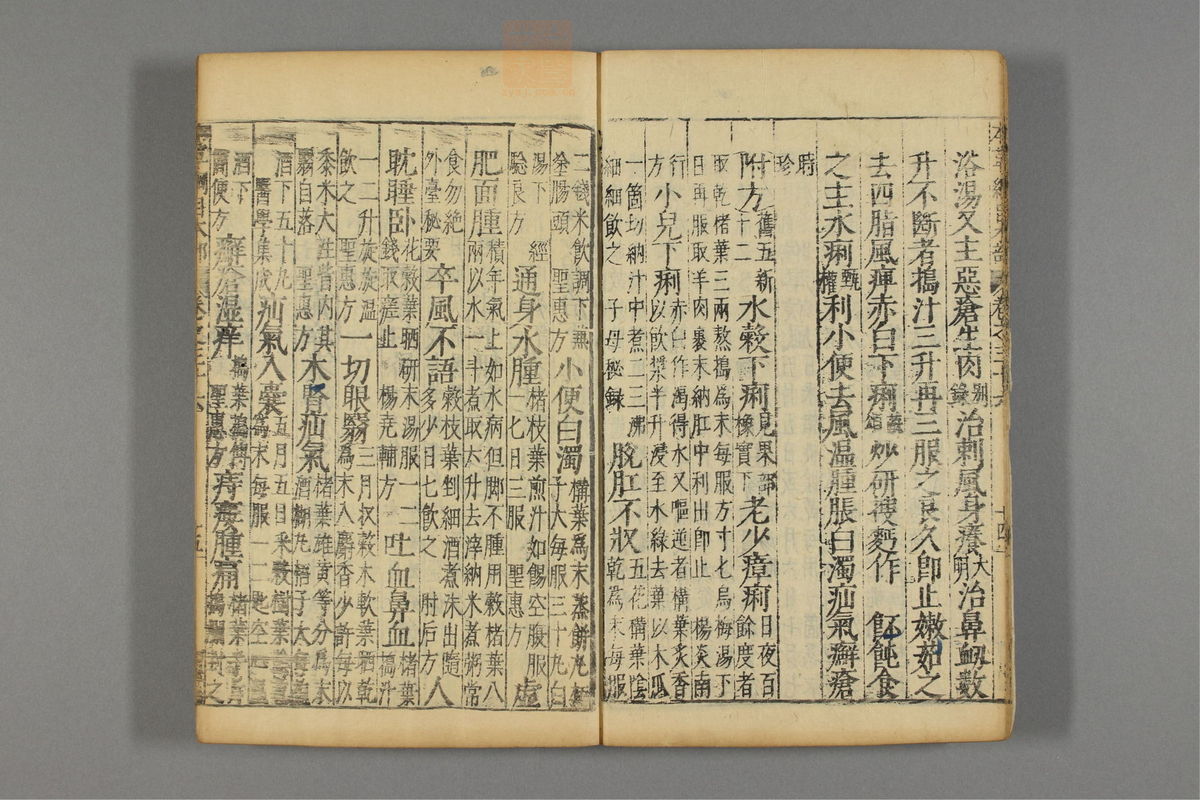 浴湯又主惡瘡生肉別錄治刺風身癢大明治鼻衄數
升不斷者搗汁三升再三服之良久即止嫩茹之
去四肢風痺赤白下痢蘇頌炒研搜麪作飥食
之主水痢甄權利小便去風溫腫脹白濁疝氣癬瘡
時珍
附方舊五新十二水穀下痢見果部橡實下老少瘴痢日夜百餘度者
取乾楮葉三兩熬搗為末每服方寸匕烏梅湯下
日再服取羊肉裹末納肛中利出即止楊炎南
行方小兒下痢赤白作渴得水又嘔逆者構葉炙香
以飲漿半升浸至水綠去葉以木瓜
一箇切納汁中煮二三沸
細細飲之子母秘錄脫肛不收五花構葉陰乾為末每服
二錢米飲調下兼
塗腸頭聖惠方小便白濁構葉為末蒸餅丸梧子大每服三十丸白
湯下經驗良方通身水腫楮枝葉煎汁如餳空腹服一匕日三服聖惠方虛
肥面腫積年氣上如水病但脚不腫用穀楮葉八
兩以水一斗煮取六升去滓納米煮粥常
食勿絕外臺秘要卒風不語穀枝葉剉細酒煮沫出隨多少日七飲之肘后方人
耽睡臥花穀葉晒研末湯服一二
錢取瘥止楊堯輔方吐血鼻血楮葉搗汁
一二升旋旋溫飲之聖惠方一切眼翳三月收穀木軟葉晒乾為末入麝香少許每以
黍米大注眥內其翳自落聖惠方木腎疝氣楮葉雄黃等分為末酒糊丸梧子大每
酒下五十丸醫學集成疝氣入囊五月五日采穀樹葉為末每服一二匙空心
酒下簡便方癬瘡濕癢楮葉搗傅聖惠方痔瘻腫痛楮葉